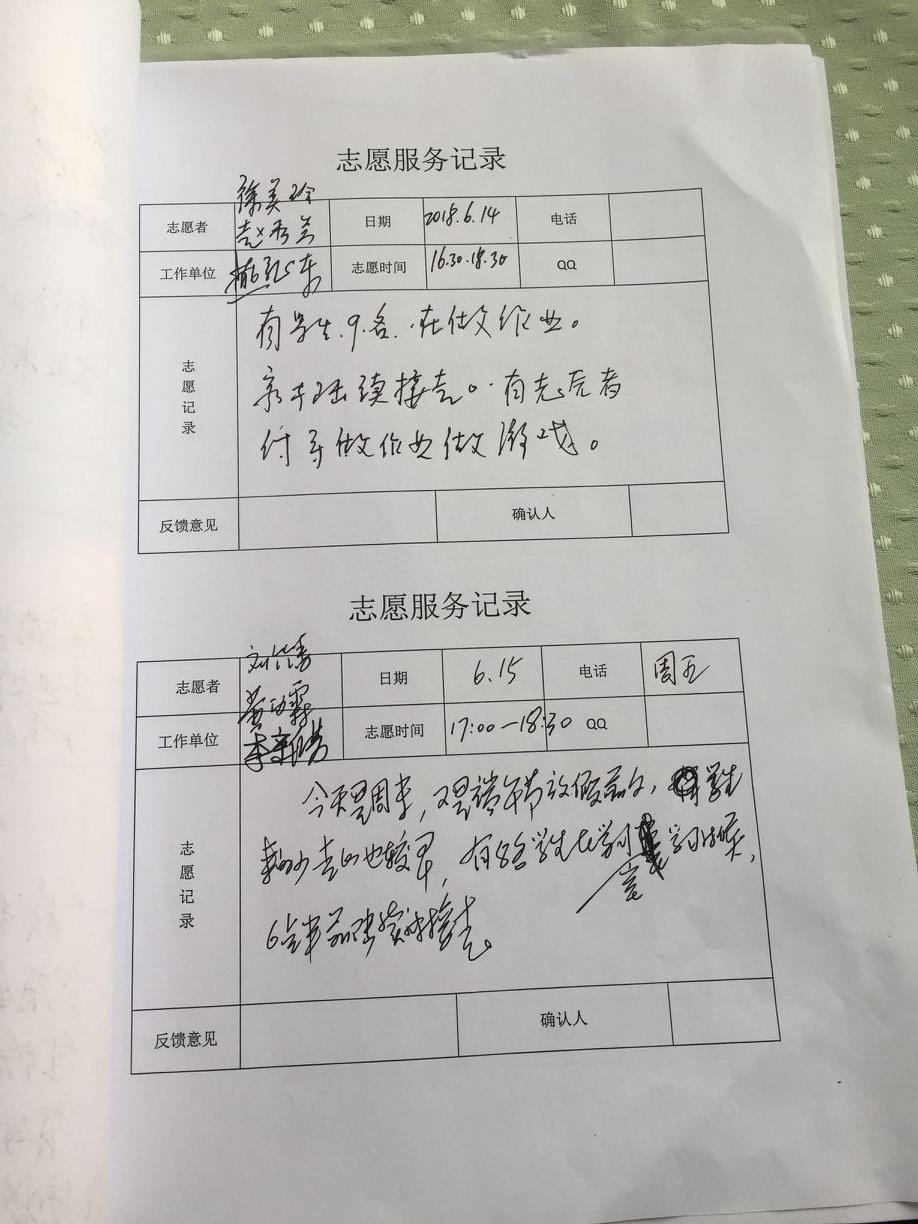 志愿服务记录
志愿者 徐美玲 赵秀兰 日期 2018.6.14 电话
工作单位 志愿时间 16:30-18:30 QQ
志愿记录
有学生.9.名.在做作业。
家长陆续接走。有志愿者
付导做作业做游戏。
反馈意见 确认人
志愿服务记录
志愿者 日期 6.15 电话 周五
工作单位 志愿时间 17:00—18:30 QQ
志愿记录
今天是周末,又是端午节放假前夕,学生
来的少走的也较早,有8名学生在学习室学习,
6点半前陆续接走。
反馈意见 确认人